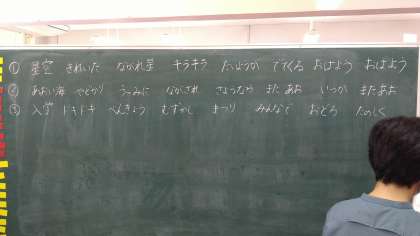 ① 星空 きれいだ ながれ星 キラキラ たいようが でてくる おはよう おはよう
② あおい海 やどかり うみに ながされ さようなら また あお いつか またあお
③ 入学 ドキドキ べんきょう むずかし まつり みんなで おどろ たのしく